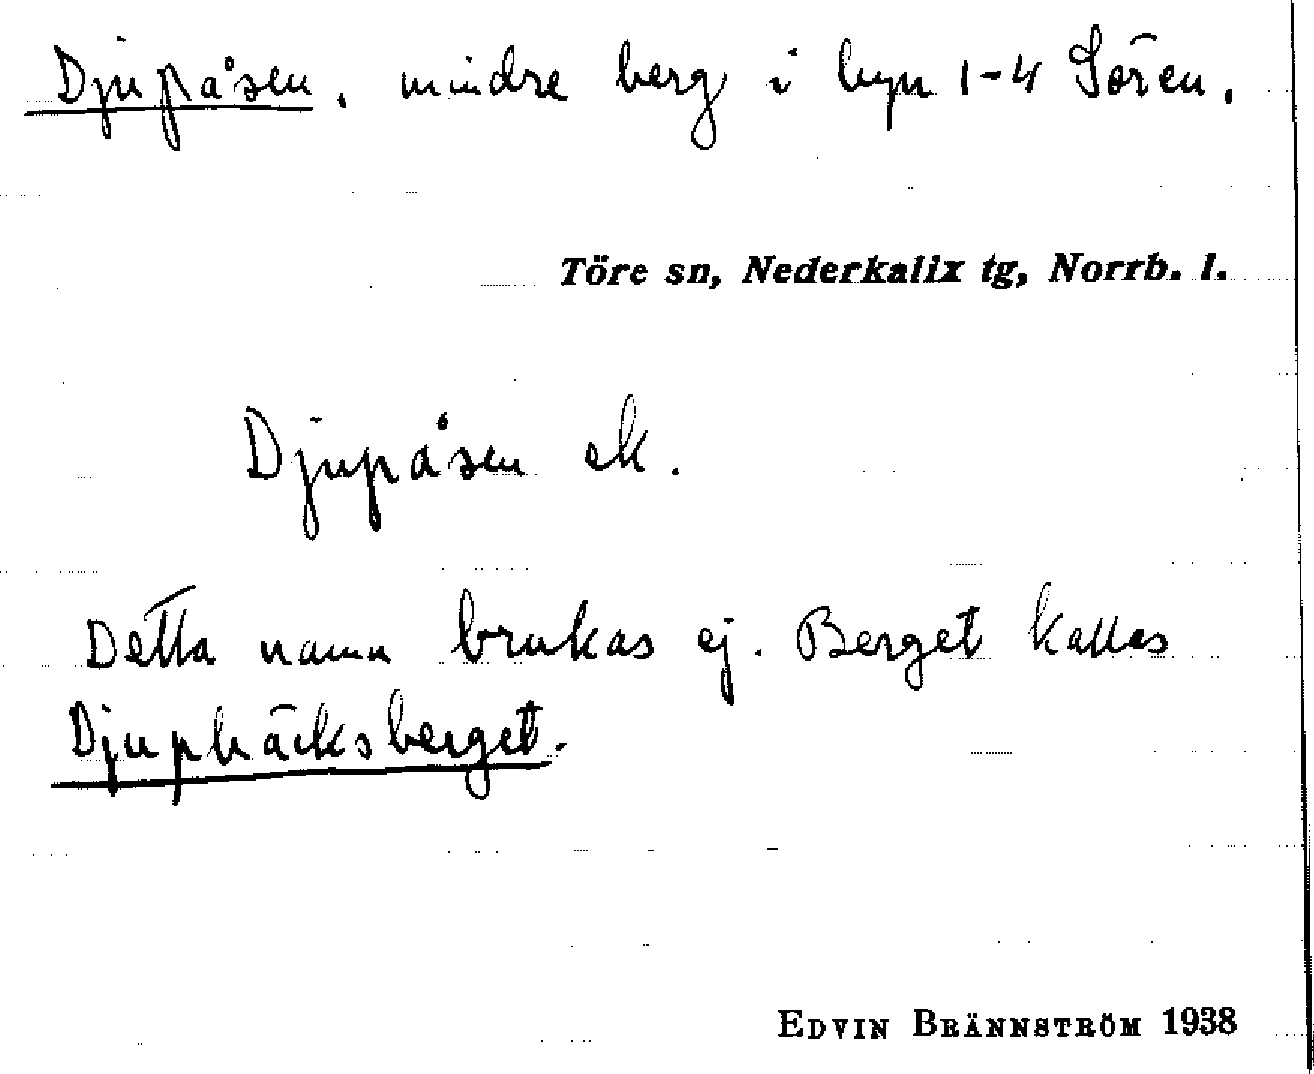 Djupåsen, mindre berg i byn 1-4 Sören.
Töre sn, Nederkalix tg, Norrb. l.
Djupåsen ek.
Detta namn brukas ej. Berget kallas
Djupbäcksberget.
EDVIN BRÄNNSTRÖM 1938